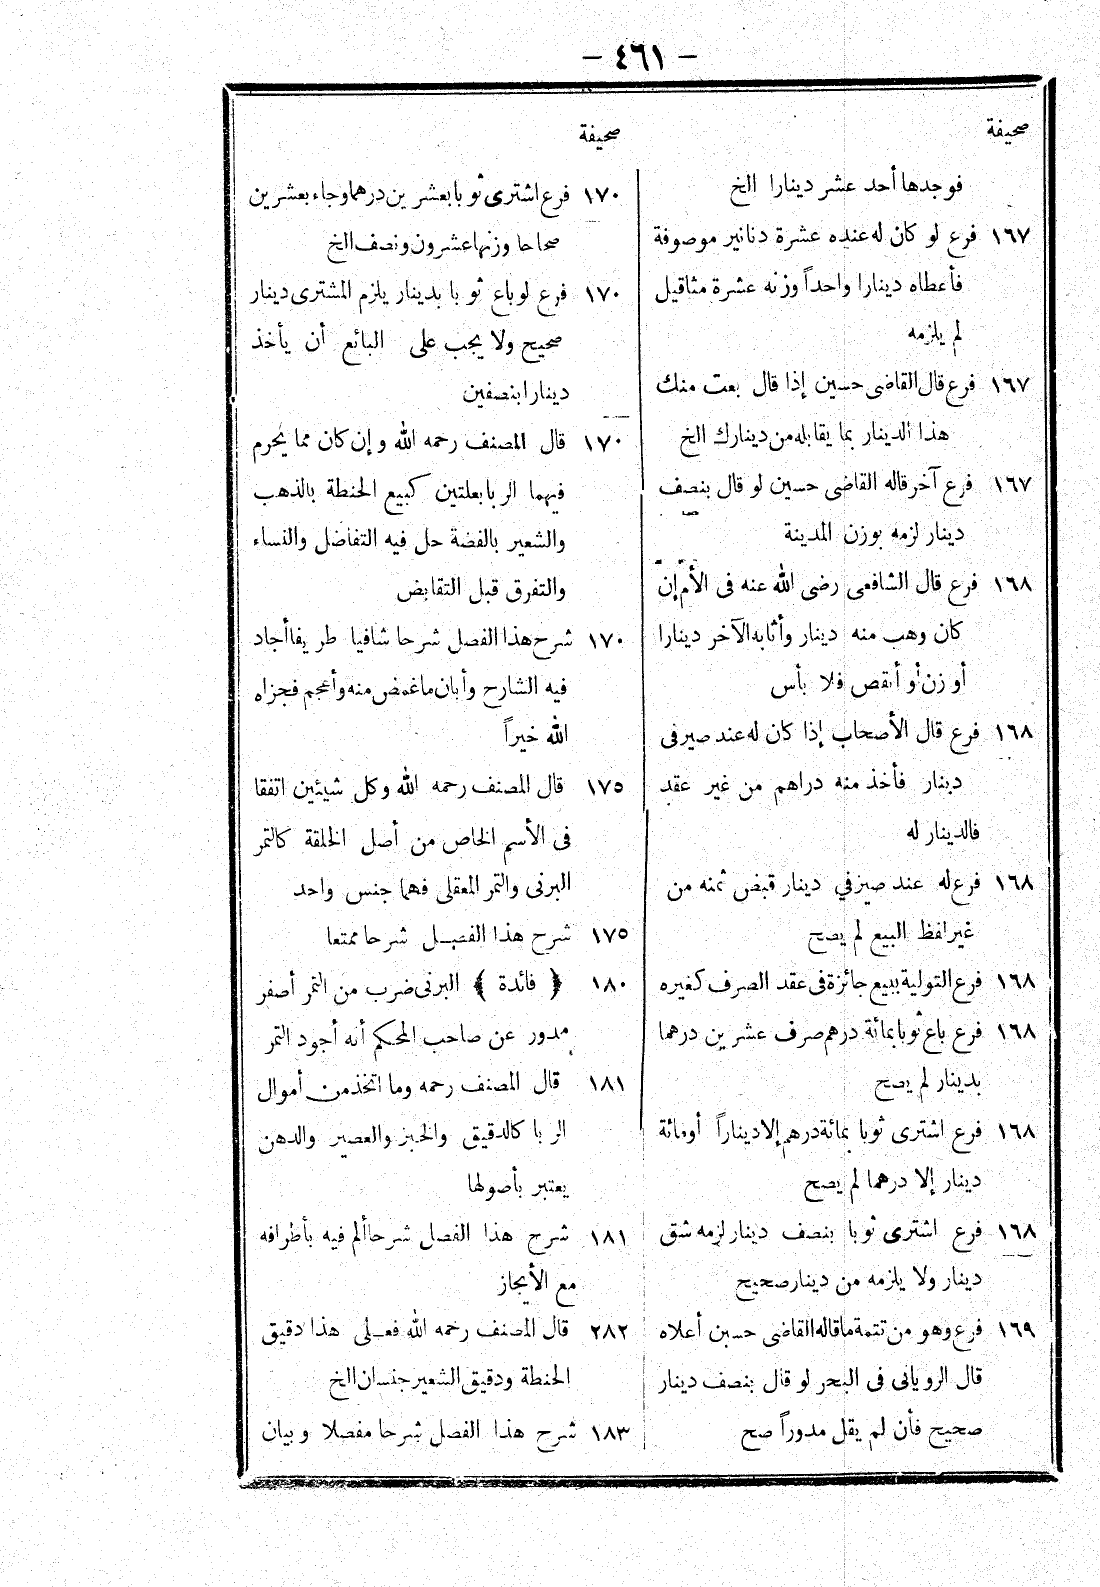 — ٤٦١ —
صحيفة
فوجدها أحد عشر دينارا الخ
١٦٧ فرع لو كان له عنده عشرة دنانير موصوفة
فأعطاه دينارا واحداً وزنه عشرة مثاقيل
لم يلزمه
١٦٧ فرع قال القاضى حسين إذا قال بعت منك
هذا الدينار بما يقابله من دينارك الخ
١٦٧ فرع آخر قاله القاضى حسين لو قال بنصف
دينار لزمه بوزن المدينة
١٦٨ فرع قال الشافعى رضى الله عنه فى الأم إن
كان وهب منه دينار وأثابه الآخر دينارا
أوزن أو أنقص فلا بأس
١٦٨ فرع قال الأصحاب إذا كان له عند صيرفى
دينار فأخذ منه دراهم من غير عقد
فالدينار له
١٦٨ فرع له عند صيرفي دينار قبض ثمنه من
غير لفظ البيع لم يصح
١٦٨ فرع التولية بيع جائزة فى عقد الصرف كغيره
١٦٨ فرع باع ثوبا بمائة درهم صرف عشرين درهما
بدينار لم يصح
١٦٨ فرع اشترى ثوبا بمائة درهم إلا ديناراً أومائة
دينار إلا درهما لم يصح
١٦٨ فرع اشترى ثوبا بنصف دينار لزمه شق
دينار ولا يلزمه من دينار صحيح
١٦٩ فرع وهو من تتمة ماقاله القاضى حسين أعلاه
قال الرويانى فى البحر لو قال بنصف دينار
صحيح فأن لم يقل مدوراً صح
صحيفة
١٧٠ فرع اشترى ثوبا بعشرين درهما وجاء بعشرين
صحاحا وزنها عشرون ونصف الخ
١٧٠ فرع لو باع ثوبا بدينار يلزم المشترى دينار
صحيح ولا يجب على البائع أن يأخذ
دينارا بنصفين
١٧٠ قال المصنف رحمه الله وإن كان مما يحرم
فيهما الربا بعلتين كبيع الحنطة بالذهب
والشعير بالفضة حل فيه التفاضل والنساء
والتفرق قبل التقابض
١٧٠ شرح هذا الفصل شرحا شافيا طريفا أجاد
فيه الشارح وأبان ماغمض منه وأعجم فجزاه
الله خيراً
١٧٥ قال المصنف رحمه الله وكل شيئين اتفقا
فى الأسم الخاص من أصل الخلقة كالتمر
البرنى والتمر المعقلى فهما جنس واحد
١٧٥ شرح هذا الفصل شرحا ممتعا
١٨٠ ﴿ فائدة ﴾ البرنى ضرب من التمر أصفر
مدور عن صاحب المحكم أنه أجود التمر
١٨١ قال المصنف رحمه وما اتخذ من أموال
الربا كالدقيق والخبز والعصير والدهن
يعتبر بأصولها
١٨١ شرح هذا الفصل شرحا ألم فيه بأطرافه
مع الأيجاز
٢٨٢ قال المصنف رحمه الله فعلى هذا دقيق
الحنطة ودقيق الشعير جنسان الخ
١٨٣ شرح هذا الفصل شرحا مفصلا وبيان